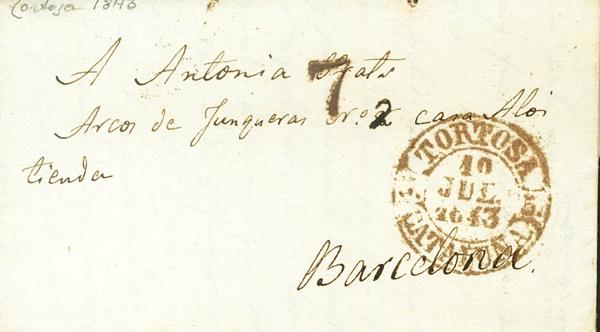 Tortosa 1843
A Antonia Prats
7
Arcos de Junqueras nro. 2 casa Aloi
tienda
TORTOSA
10
JUL
1843
CATALUÑA
Barcelona.